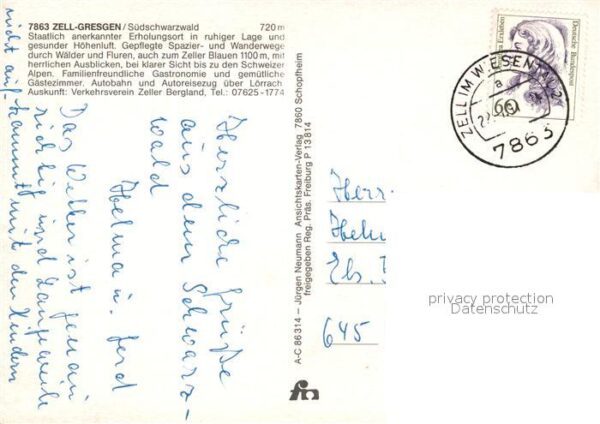 7863 ZELL-GRESGEN / Südschwarzwald 720 m
Staatlich anerkannter Erholungsort in ruhiger Lage und
gesunder Höhenluft. Gepflegte Spazier- und Wanderwege
durch Wälder und Fluren, auch zum Zeller Blauen 1100 m, mit
herrlichen Ausblicken, bei klarer Sicht bis zu den Schweizer
Alpen. Familienfreundliche Gastronomie und gemütliche
Gästezimmer. Autobahn und Autoreisezug über Lörrach.
Auskunft: Verkehrsverein Zeller Bergland, Tel.: 07625-1774
Herzliche Grüße
aus dem Schwarz-
wald
Helma u. Ferd
Das Wetter ist
richtig und Langeweile
kommt mit den Kindern
nicht auf.
A-C 86 314 – Jürgen Neumann Ansichtskarten-Verlag 7860 Schopfheim
freigegeben Reg. Präs. Freiburg P 13 814
Deutsche Bundespost
60
ZELL IM WIESENTAL 2
a
7863
Herr
645
privacy protection
Datenschutz